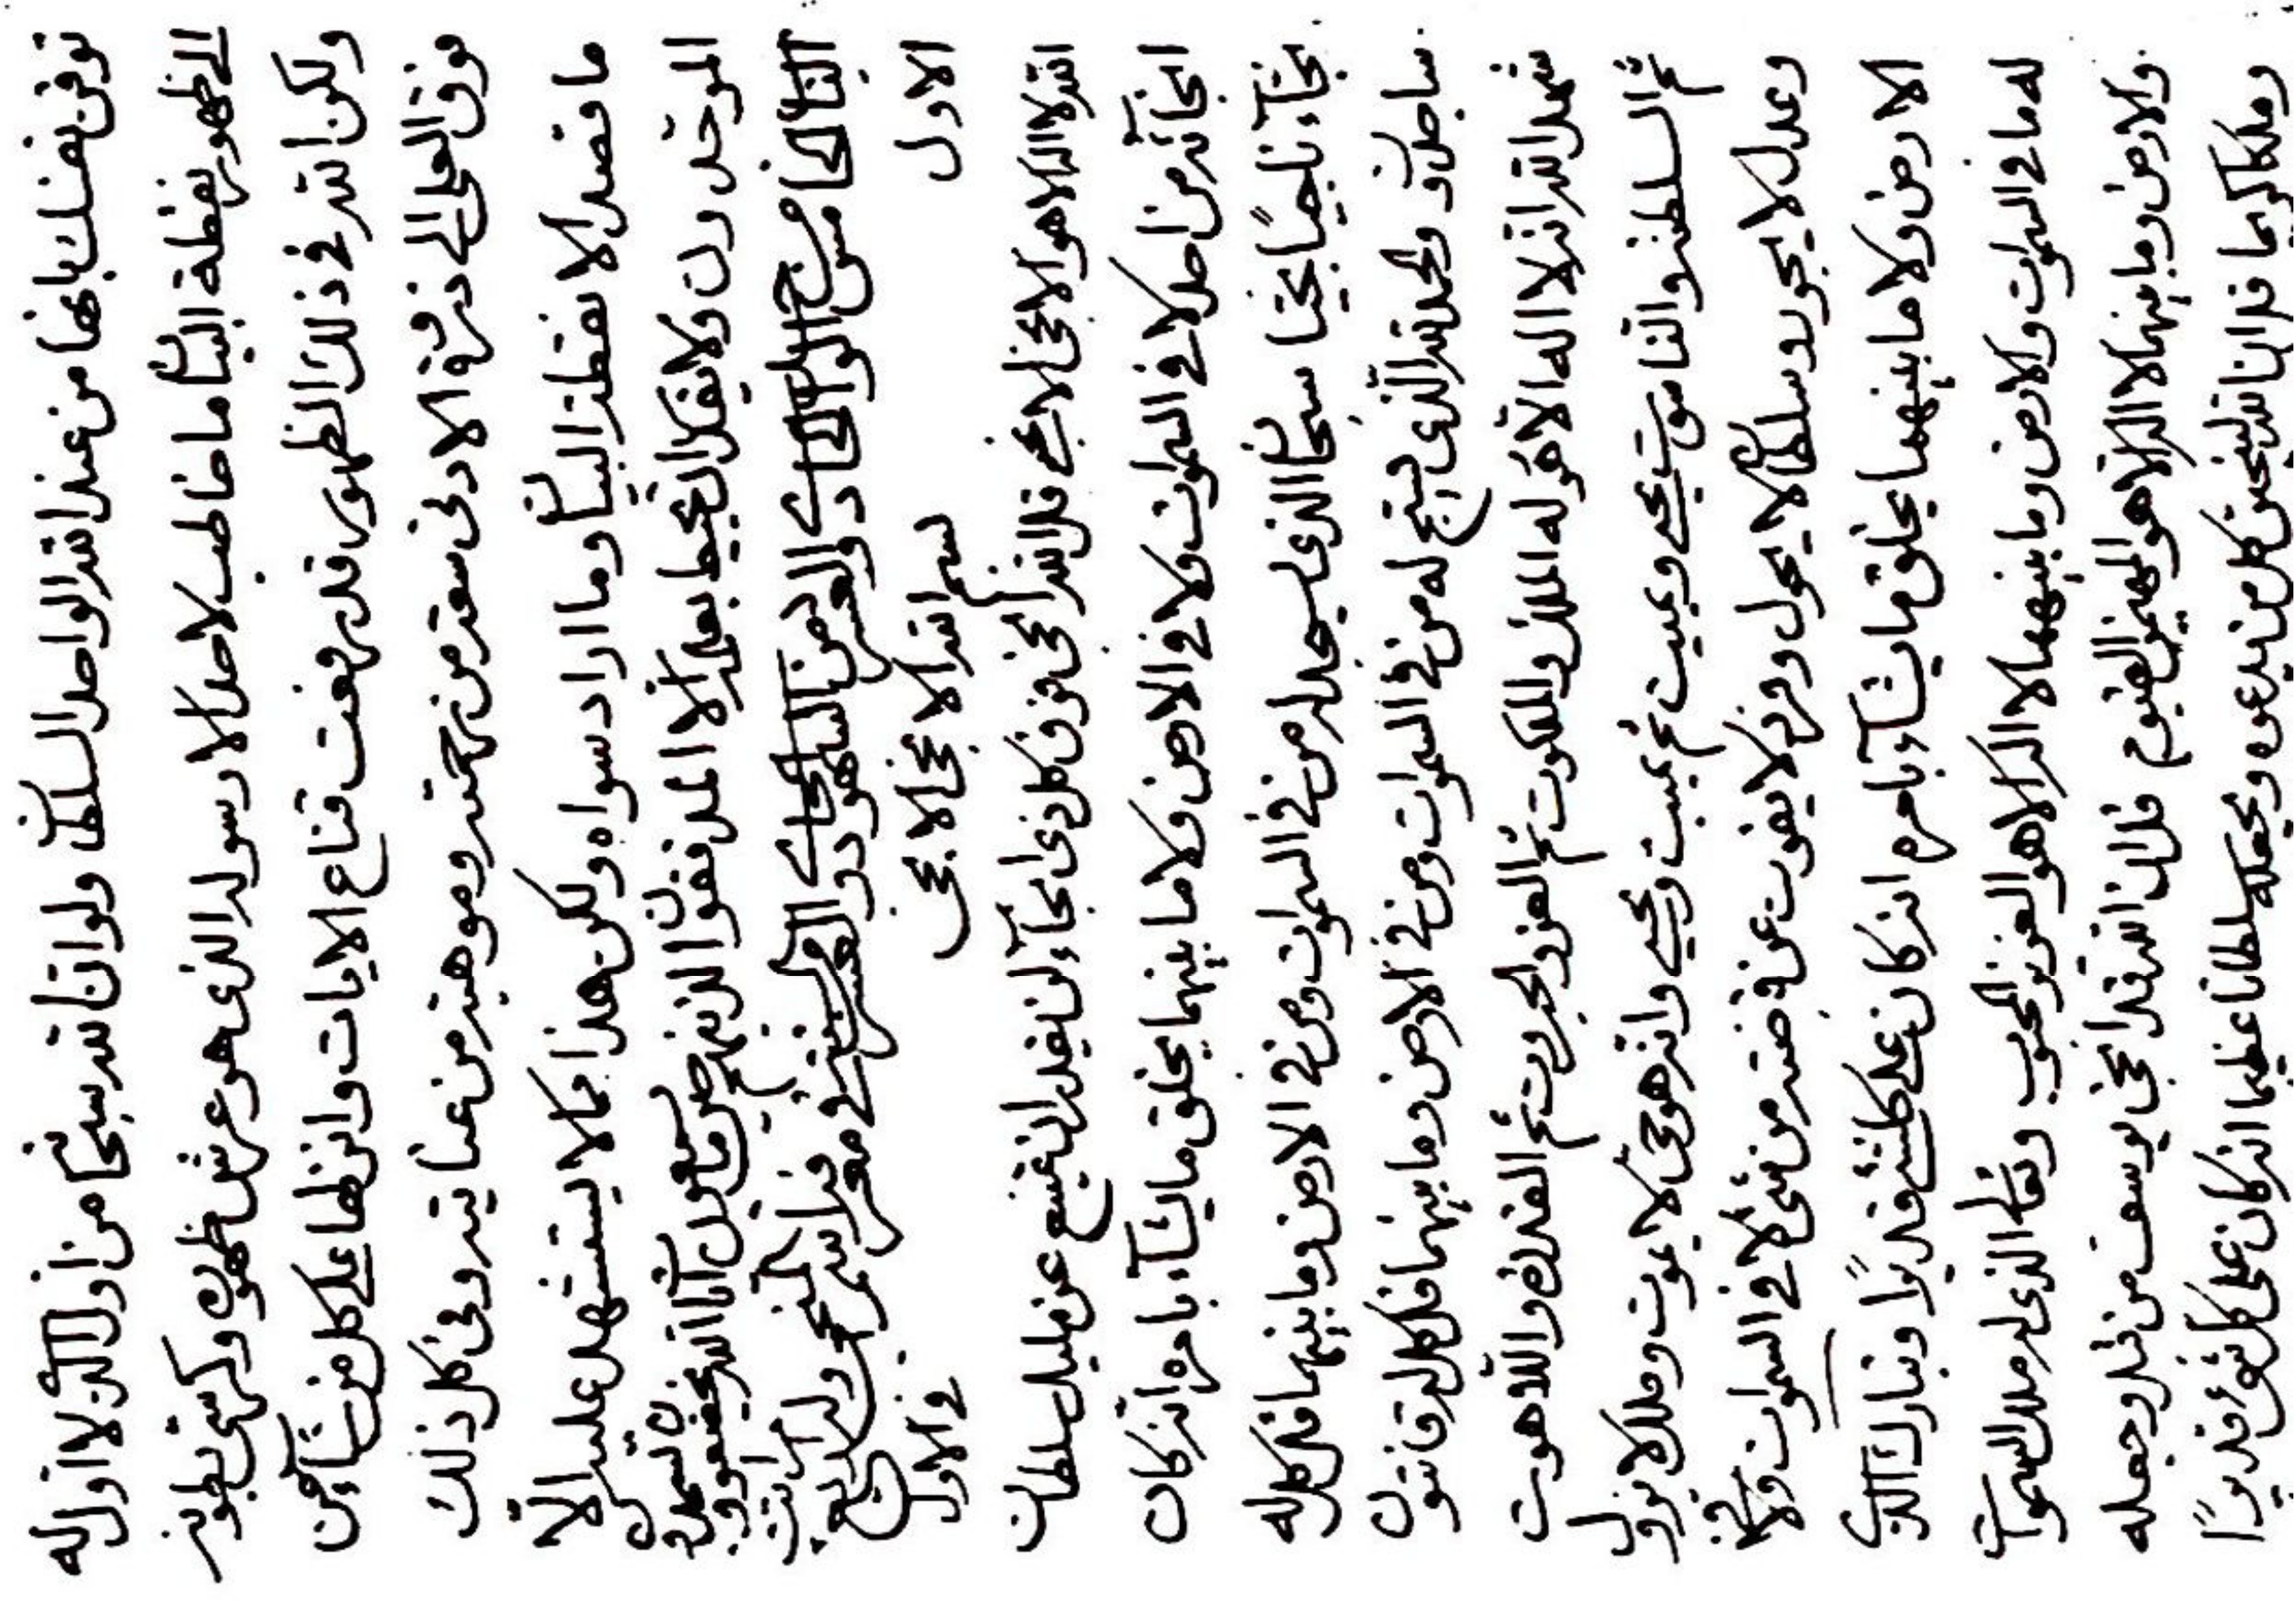 توقن نفسك بانها من عند الله الواحد السلطان ولو ان الله سبحانه من اول الذي لا اول له
الى ظهور نقطة البيان ما خاطب لاحد الا رسوله الذي هو عرش ظهوره وكرسي بطونه
ولكن الله في ذلك الظهور قد رفعت قناع الايات وانزلها على كل من يشاء من
فوق العلى الى ذروة الادنى سعة من رحمته وموهبة من عنايته وفي كل ذلك
ما قصد الا نقطة البيان وما اراد سواه ولكن هذا مما لا يستشهد عليه الا
الموحدون ولا يقدر ان يحيط بعلمه الا المدققون الذينهم
الباب الخامس من الواحد الحادي والعشر من الشهر الحادي والعشر من السنة في معرفة اسم
الاول بسم الله الابهى الابهى في الاول
الله لا اله الا هو الابهى الابهى قل الله ابهى فوق كل ذي ابهاء لن يقدر ان يمتنع عن مليك سلطان
ابهائه من احد لا في السموات ولا في الارض ولا ما بينهما يخلق ما يشاء بامره انه كان
بهاء باهيا بهيا سبحان الذي يسجد له من في السموات ومن في الارض وما بينهما قل كل له
ساجدون والحمد لله الذي يسبح له من في السموات ومن في الارض وما بينهما قل كل له قانتون
شهد الله انه لا اله الا هو له الملك والملكوت ثم العز والجبروت ثم القدرة واللاهوت
ثم السلطنة والناسوت يحيي ويميت ثم يميت ويحيي وانه هو حي لا يموت وملك لا يزول
وعدل لا يجور وسلطان لا يحول وفرد لا يفوت عن قبضته من شيء لا في السموات ولا في
الارض ولا ما بينهما يخلق ما يشاء بامره انه كان على كل شيء قديرا وتبارك الذي
له ما في السموات والارض وما بينهما لا اله الا هو العزيز المحبوب وتعالى الذي له ملك السموات
والارض وما بينهما لا اله الا هو المهيمن القيوم قل ان الله قد ابهى يوسف من قبل وجعله
وملكا كريما قل ان الله ليبهين كل من يدعوه ويجعله سلطانا عظيما انه كان على كل شيء قديرا